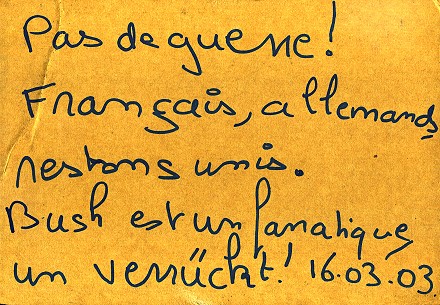 Pas de guerre!
Français, allemands,
restons unis.
Bush est un fanatique,
un verrückt! 16.03.03